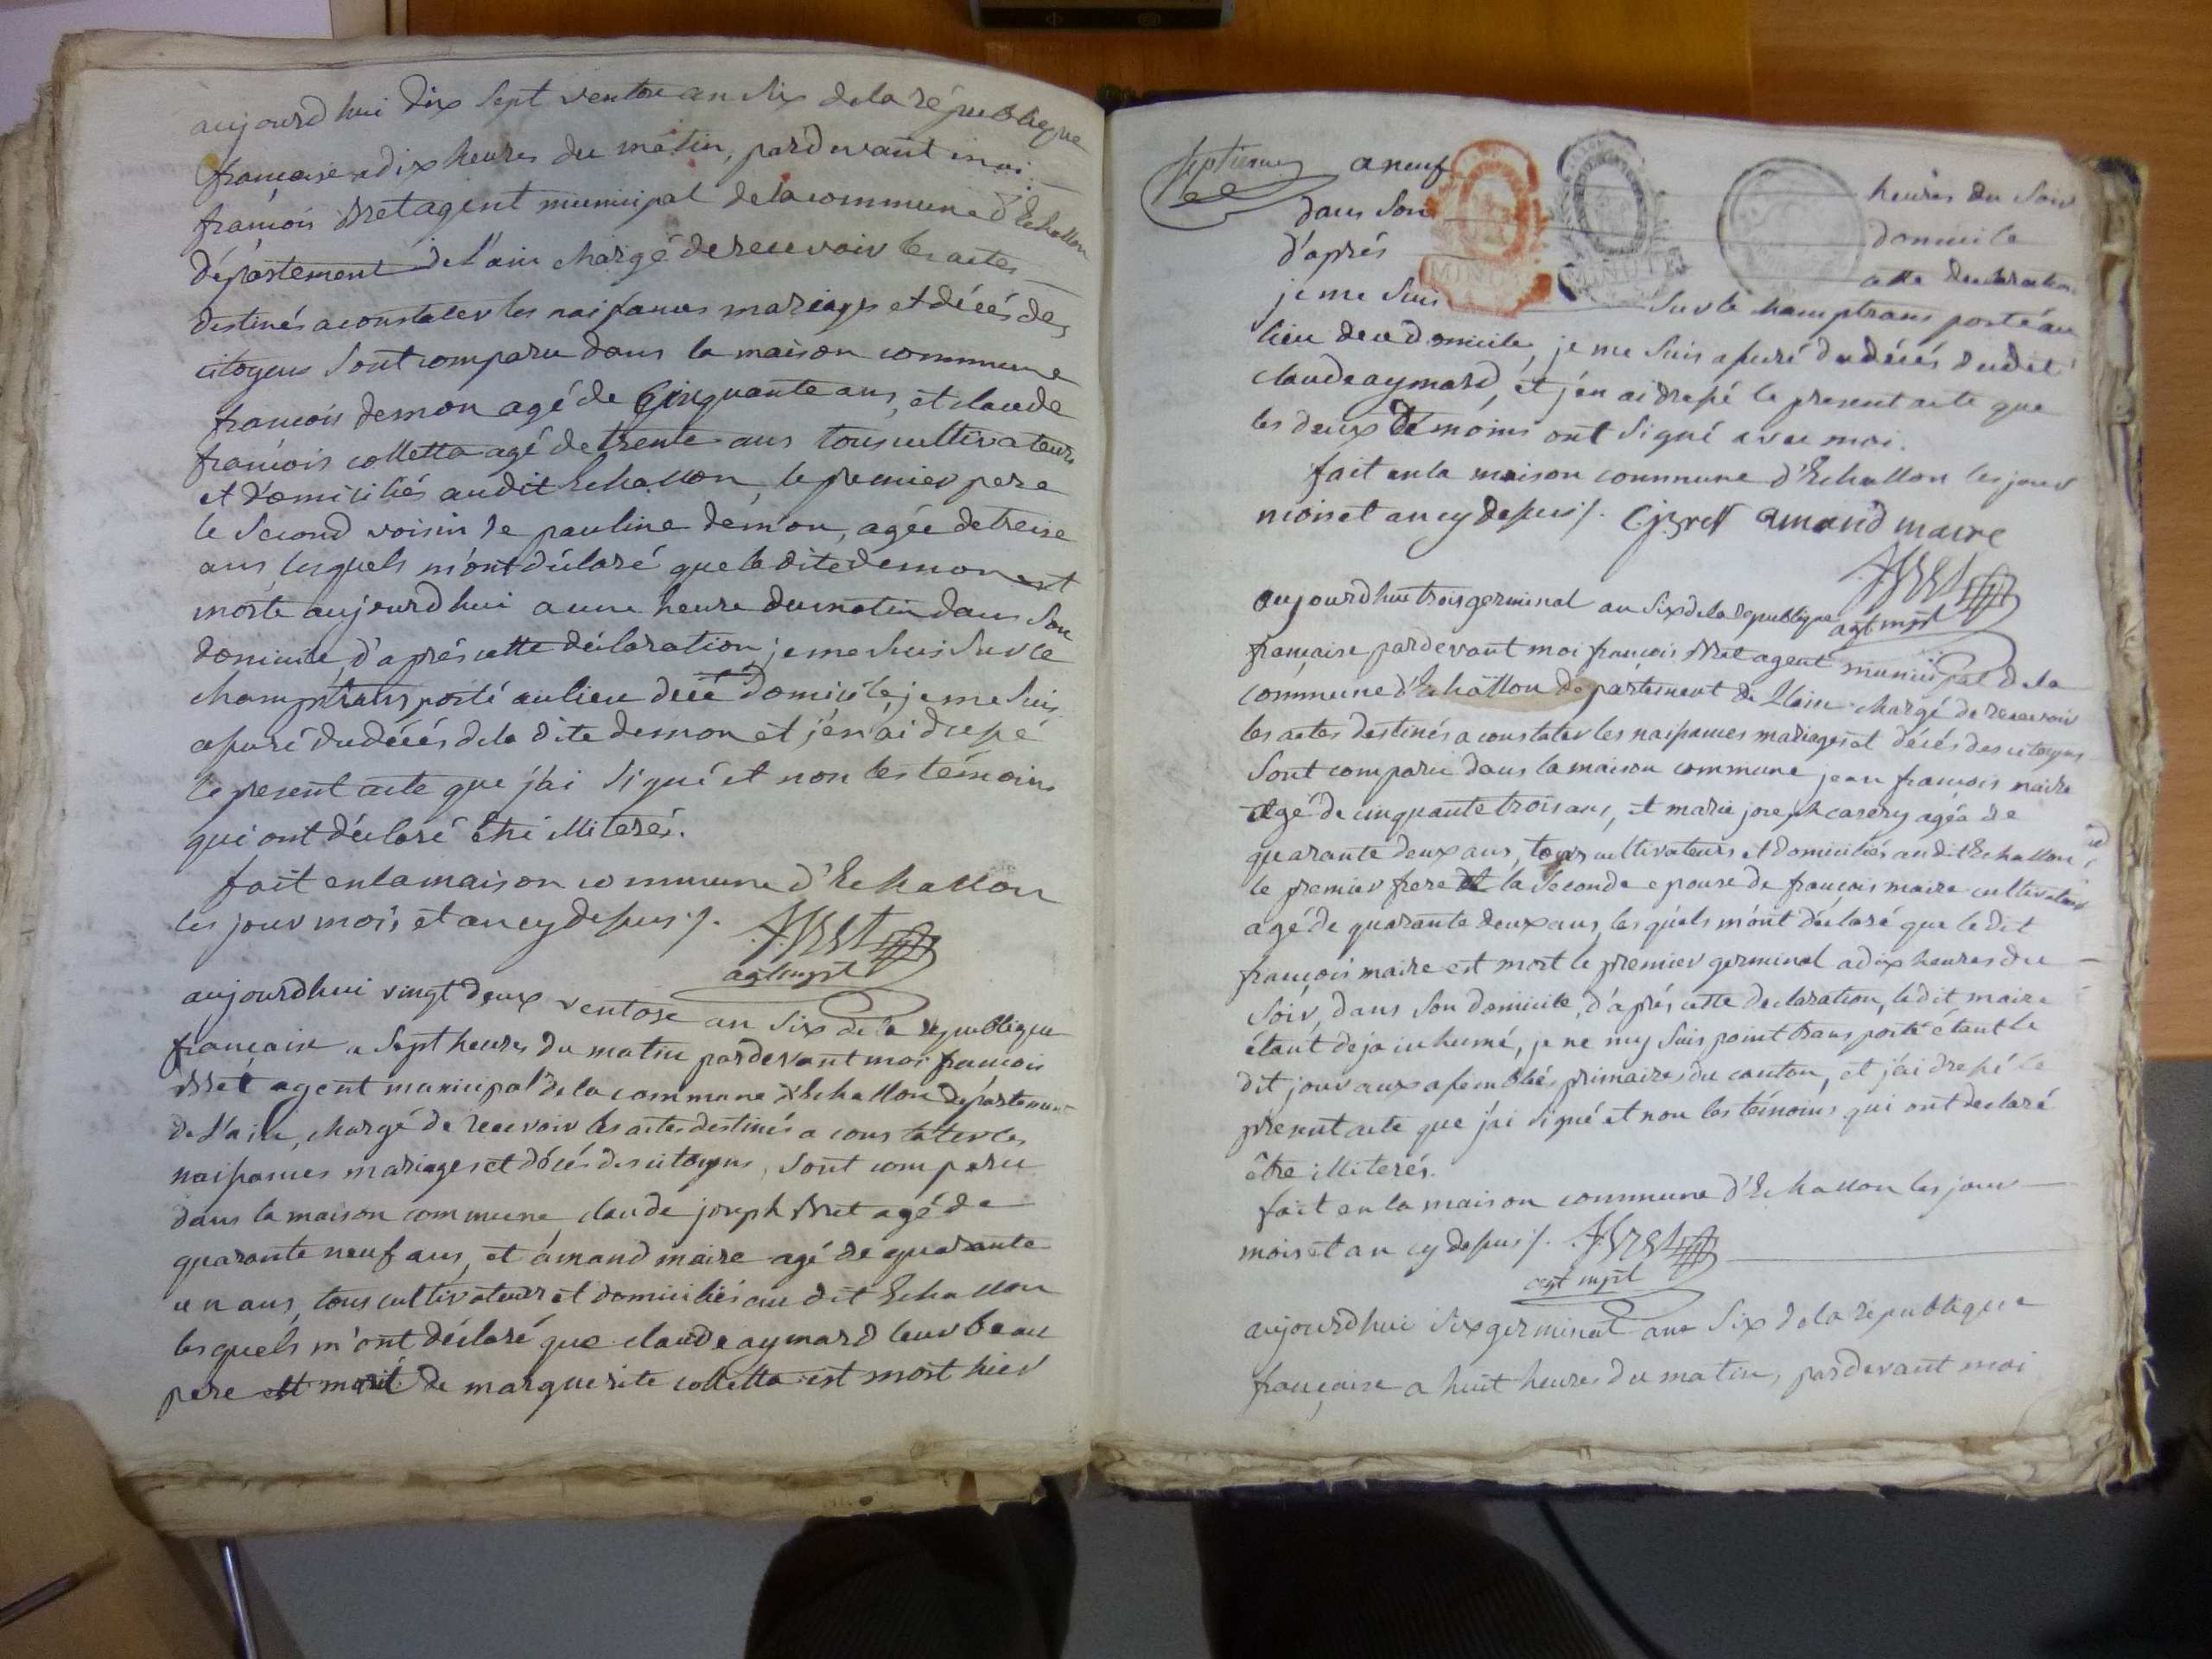 aujourd hui dix sept ventose an six de la république
françaire a dix heures du matin, pardevant moi
françois Bret agent municipal de la commune d'Echallon
département de l'ain chargé de recevoir les actes
destinés a constater les naissances mariages et décés des
citoyens sont comparu dans la maison commune
françois demon agé de Cinquante ans, et claude
françois colletta agé de trente ans tous cultivateurs
et domiciliés au dit Echallon, le premier pere
le second voisin de pauline demon, agée de treise
ans lesquels m'ont déclaré que la dite demon est
morte aujourd hui a une heure du matin dans son
domicile, d'aprés cette déclaration je me suis sur le
champ transporté au lieu de ce domicile, je me suis
assuré du décés de la dite demon et j'en ai dressé
le present acte que j'ai signé et non les témoins
qui ont déclaré étre illiterés.
fait en la maison commune d'Echallon
les jour mois et an cy dessus ./. fBret
agt mpl
aujourdhui vingt deux ventose an six de la republique
françaire a sept heures du matin pardevant moi françois
Bret agent municipal de la commune d'Echallon département
de l'ain, chargé de recevoir les actes destinés a constater les
naissances mariages et décés des citoyens, sont comparu
dans la maison commune claude joseph Bret agé de
quarante neuf ans, et amand maire agé de quarante
un ans, tous cultivateurs et domiciliés au dit Echallon
lesquels m'ont déclaré que claude aymard leur beau
pere et marit de marguerite colletta est mort hier
septieme
a neuf heures du soir
dans son domicile
d'aprés cette declaration
je me suis sur le champ transporté au
lieu de ce domicile, je me suis assuré du décés du dit
claude aymard, et j'en ai dressé le present acte que
les deux témoins ont signé avec moi.
fait en la maison commune d'Echallon les jour
mois et an cy dessus ./. Cj Bret amand maire
fBret
agt mpl
aujourdhui trois germinal an six de la republique
française pardevant moi françois Bret agent municipal de la
commune d'Echallon département de l'ain chargé de recevoir
les actes destinés a constater les naissances mariages et décés des citoyens
sont comparu dans la maison commune jean françois maire
agé de cinquante trois ans, et marie joseph agée de
quarante deux ans, tous cultivateurs et domiciliés au dit Echallon
le premier frere et la seconde epouse de françois maire cultivateur
agé de quarante deux ans, les quels m'ont déclaré que le dit
françois maire est mort le premier germinal a dix heures du
soir, dans son domicile, d'aprés cette declaration, le dit maire
étant deja inhumé, je ne my suis point transporté étant le
dit jour aux assemblées primaires du canton, et j'ai dressé le
present acte que j'ai signé et non les témoins qui ont declaré
être illiterés.
fait en la maison commune d'Echallon les jour
mois et an cy dessus ./. fBret
agt mpl
aujourdhui six germinal an six de la république
française a huit heures du matin, pardevant moi
MINUTE
MINUTE